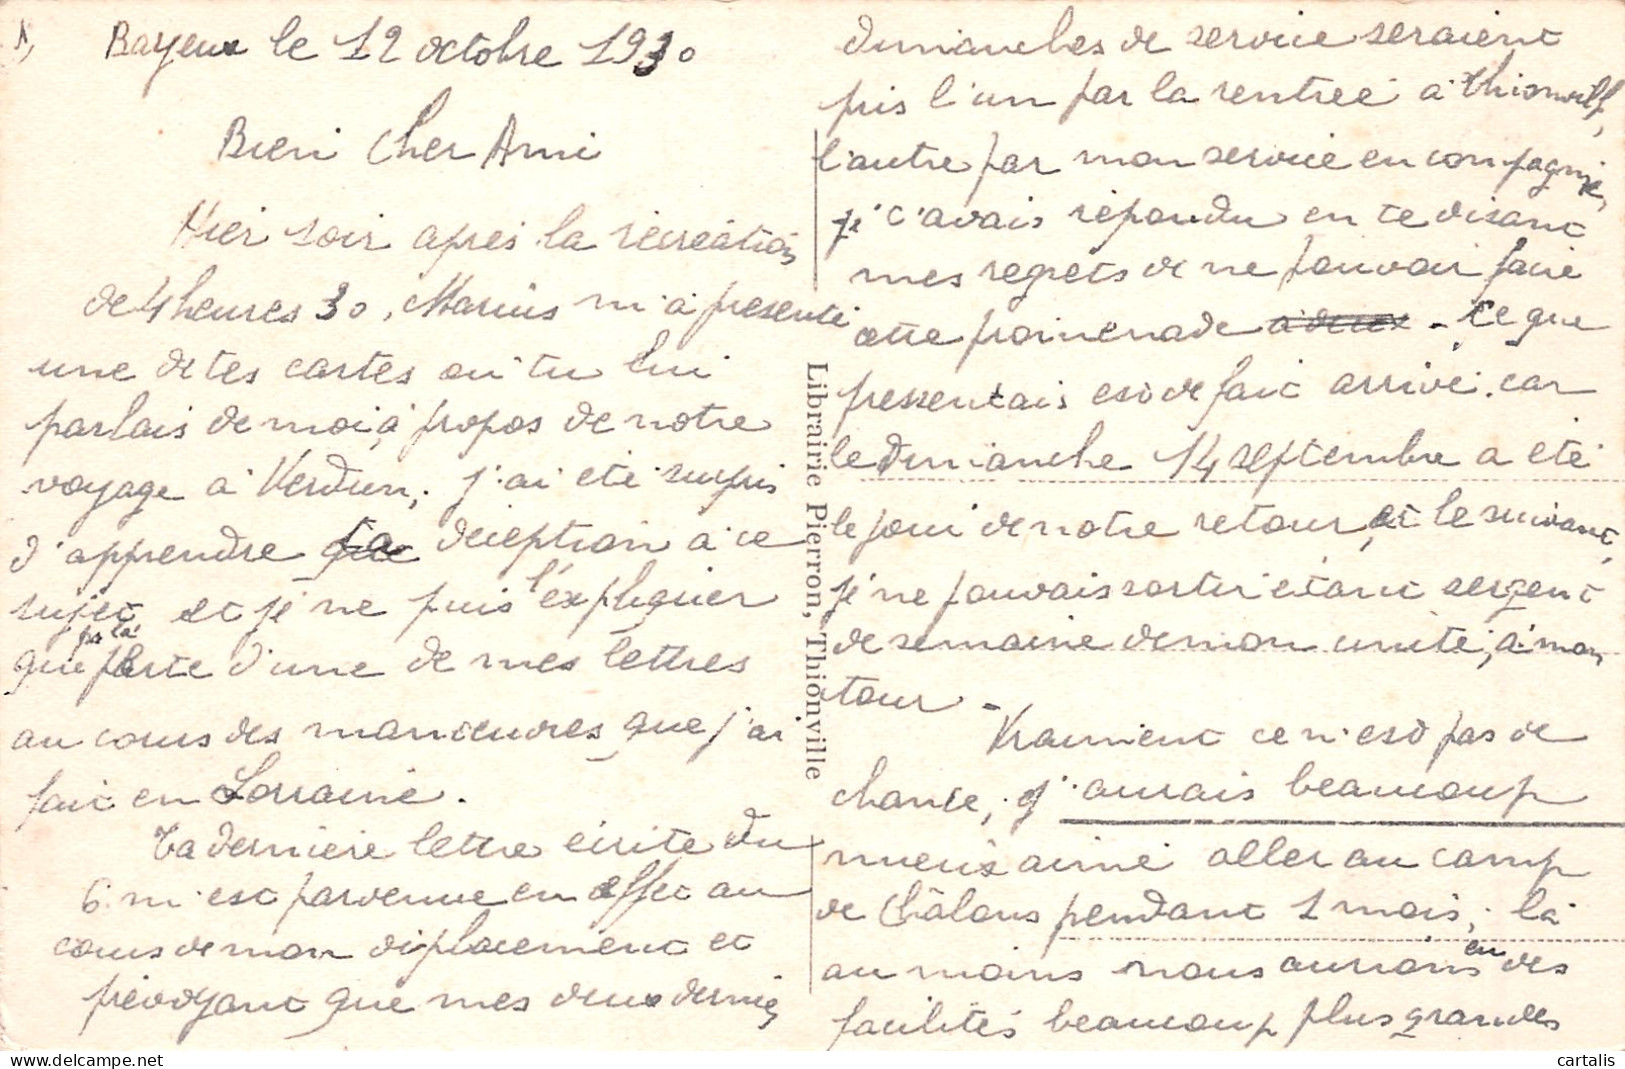 1)
Bayeux le 12 octobre 1930
Bien Cher Ami
Hier soir après la récréation
de 4 heures 30, Marius m'a présenté
une de tes cartes où tu lui
parlais de moi, à propos de notre
voyage à Verdun, j'ai été surpris
d'apprendre ta déception à ce
sujet, et je ne puis l'expliquer
que par la perte d'une de mes lettres
au cours des manoeuvres que j'ai
fait en Lorraine.
Ta dernière lettre écrite du
6 m'est parvenue en effet au
cours de mon déplacement et
prévoyant que mes deux derniers
dimanches de service seraient
pris l'un par la rentrée à Thionville,
l'autre par mon service en compagnie,
je t'avais répondu en te disant
mes regrets de ne pouvoir faire
cette promenade à deux - Ce que
pressentais est de fait arrivé. car
le dimanche 14 septembre a été
le jour de notre retour, et le suivant,
je ne pouvais sortir étant sergent
de semaine de mon unité, à mon
tour -
Vraiment ce n'est pas de
chance, j'aurais beaucoup
mieux aimé aller au camp
de Châlons pendant 1 mois, là
au moins nous aurions eu des
facilités beaucoup plus grandes
Librairie Pierron, Thionville
cartalis